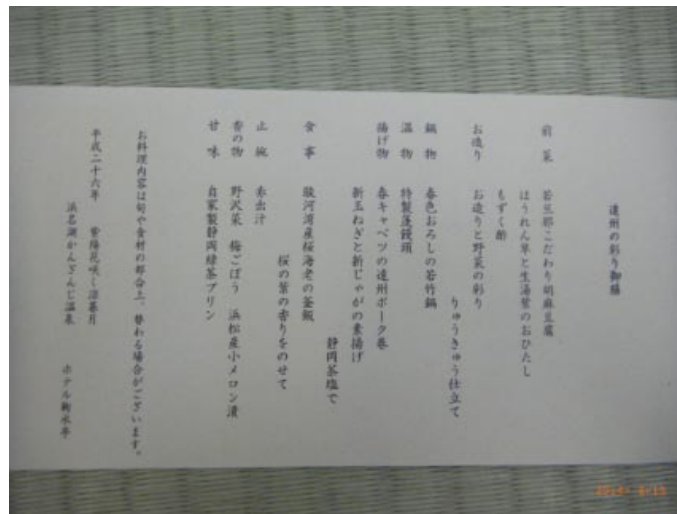 遠州の彩り御膳
前菜　若旦那こだわり胡麻豆腐
ほうれん草と生湯葉のおひたし
もずく酢
お造り　お造りと野菜の彩り
りゅうきゅう仕立て
鍋物　春色おろしの若竹鍋
温物　特製蓬饅頭
揚げ物　春キャベツの遠州ポーク巻
新玉ねぎと新じゃがの素揚げ
静岡茶塩で
食事　駿河湾産桜海老の釜飯
桜の葉の香りをのせて
止椀　赤出汁
香の物　野沢菜　梅ごぼう　浜松産小メロン漬
甘味　自家製静岡緑茶プリン
お料理内容は旬や食材の都合上、替わる場合がございます。
平成二十六年　紫陽花咲く涼暮月
浜名湖かんざんじ温泉　ホテル鞠水亭